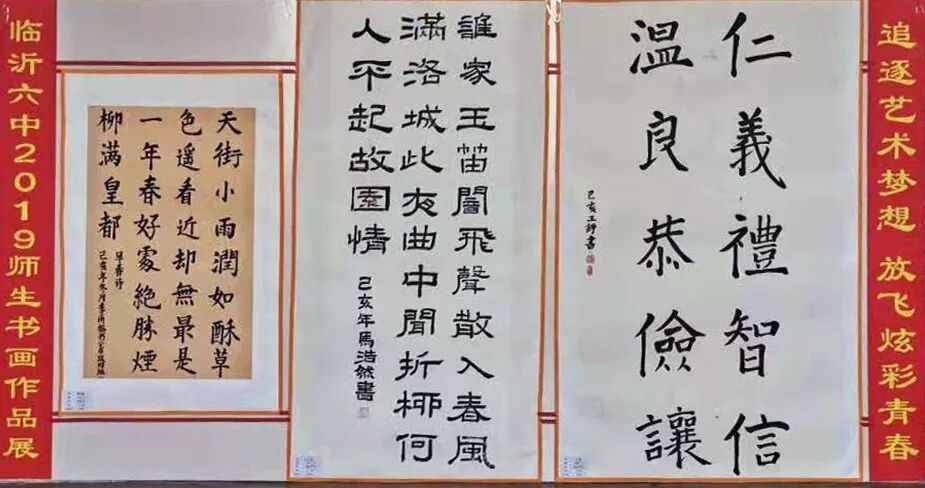 临沂六中2019师生书画作品展
天街小雨潤如酥草
色遥看近却無最是
一年春好處絶勝煙
柳满皇都
早春诗
己亥年冬月李
誰家玉笛闇飛聲散入春風
滿洛城此夜曲中聞折柳何
人不起故園情
己亥年馬浩然書
仁義禮智信
温良恭儉讓
己亥王書
追逐艺术梦想 放飞炫彩青春